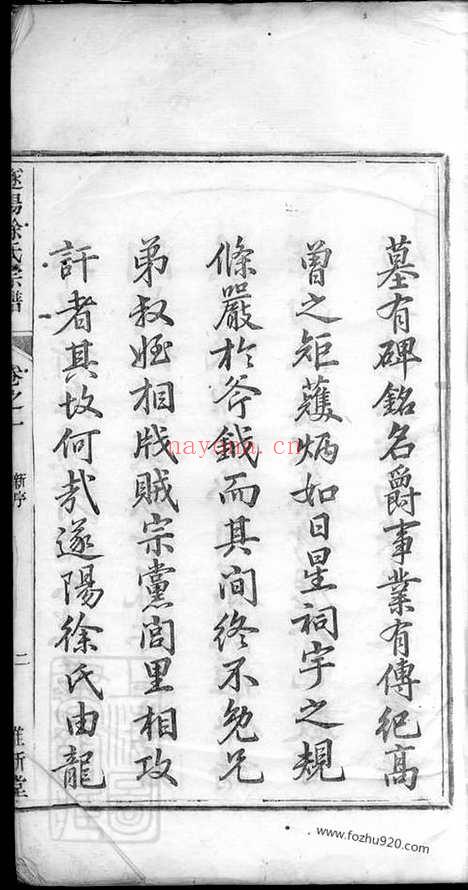 墓有碑銘名爵事業有傳紀高
曾之矩蒦炳如日星祠宇之規
條嚴於斧鉞而其间终不免兄
弟叔姪相戕賊宗黨閭里相攻
訐者其故何哉遂陽徐氏由龍
遂陽徐氏宗譜
卷之一
新序
二
維新堂
naydma.cn
www.fozhu920.com